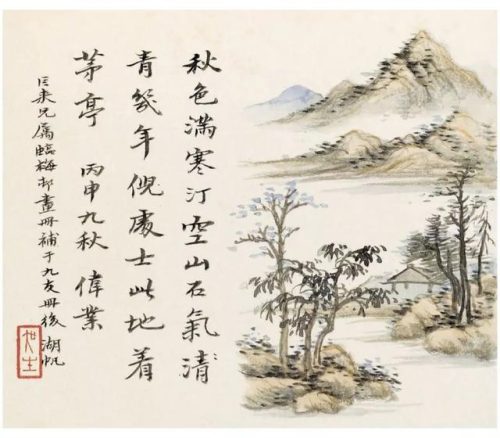 秋色滿寒汀空山石氣清
青幾年倪處士此地着
茅亭 丙申九秋 偉業
巨來兄屬臨梅邨畫冊補于九友冊後 湖帆